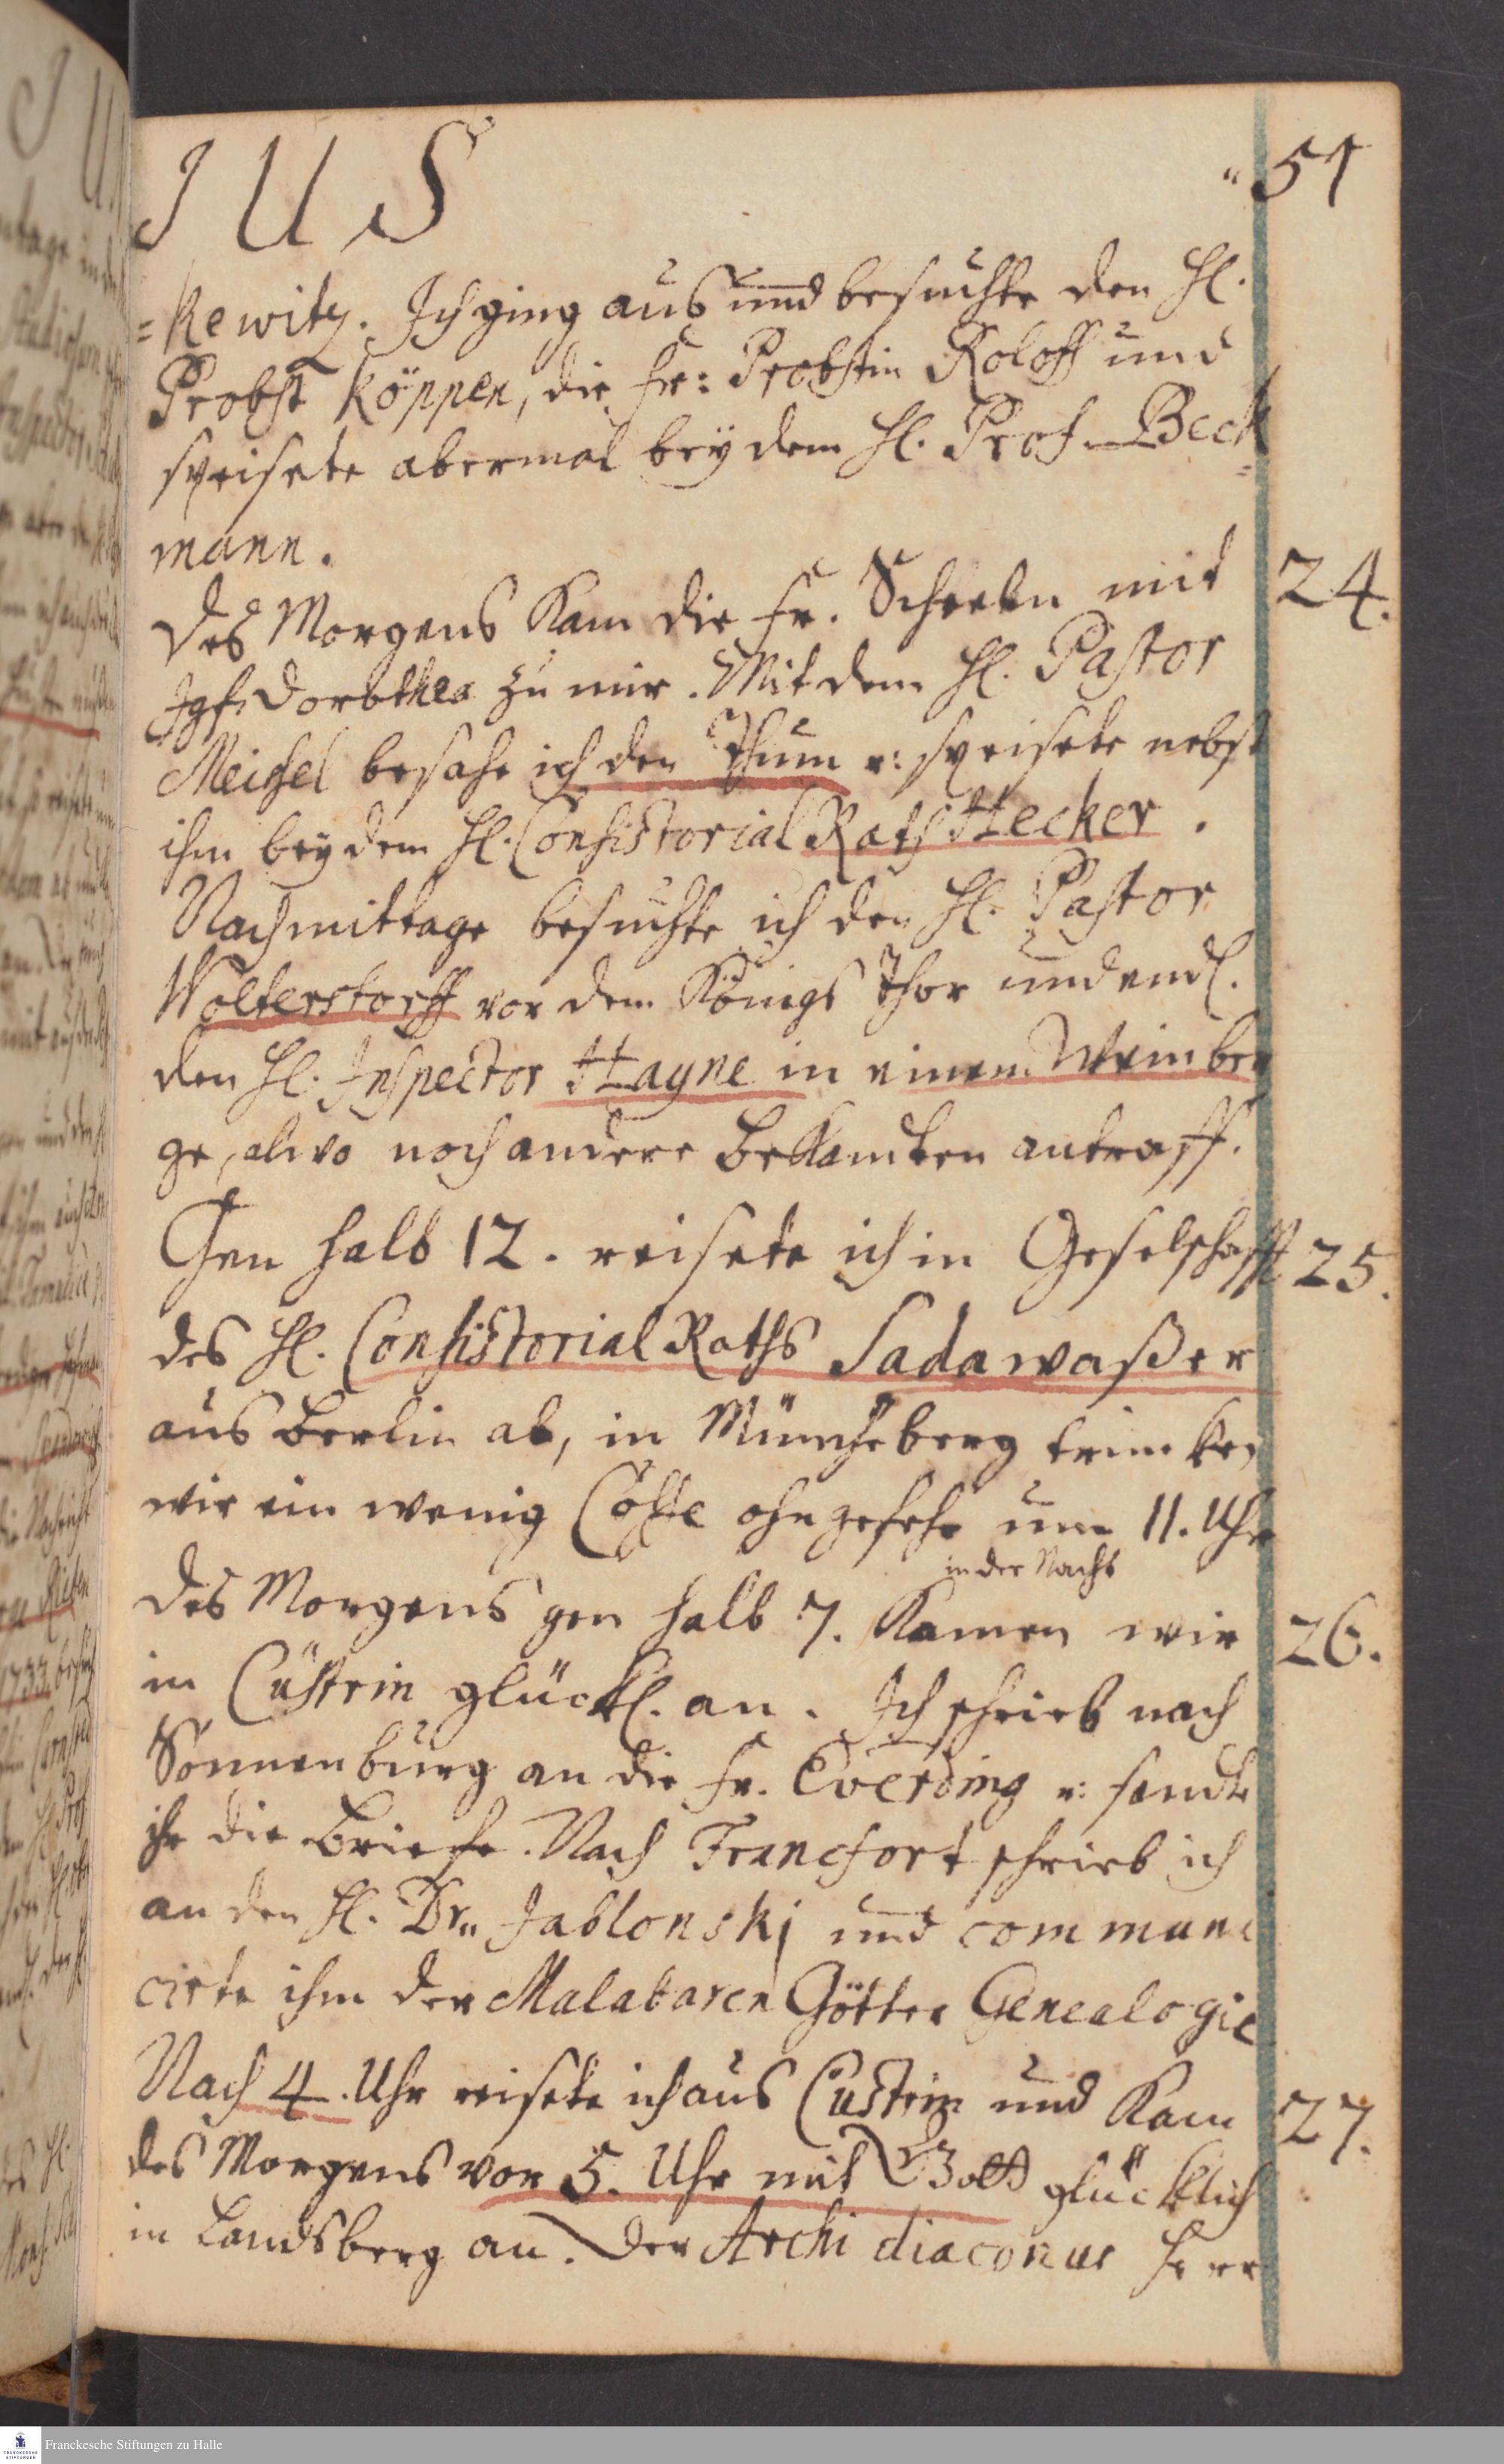 JUS
51
=kewitz. Ich ging aus und besuchte den H.
Probst Köppen, die Fr: Probstin Roloff und
speisete abermal bey dem H. Prof. Beck=
mann.
Des Morgens kam die Fr. Scheeln mit 24.
Jgf. Dorothea zu mir. Mit dem H. Pastor
Meichel besahe ich den Thum u: speisete nebst
ihm bey dem H. Consistorial Rath Hecker.
Nachmittage besuchte ich den H. Pastor
Wolterstorff vor dem Königs Thor und endl.
den H. Inspector Hayne in einem Weinber
ge, alwo noch andere Bekandten antraff.
Gen halb 12. reisete ich in Geselschafft 25.
des H. Consistorial Raths Sadewaßer
aus Berlin ab, in Müncheberg truncken
wir ein wenig Coffe ohngefehr um 11. Uhr
in der Nacht
des Morgens gen halb 7. kamen wir 26.
in Cüstrin glückl. an. Ich schrieb nach
Sonnenburg an die Fr. Everding u: sandte
ihr die Briefe. Nach Francfort schrieb ich
an den H. Dr. Jablonski und communi
cirte ihm der Malabaren Götter Genealogie
Nach 4. Uhr reisete ich aus Cüstrin und kam 27.
des Morgens vor 5. Uhr mit Gott glücklich
in Landsberg an. Der Archi diaconus Herr
Franckesche Stiftungen zu Halle